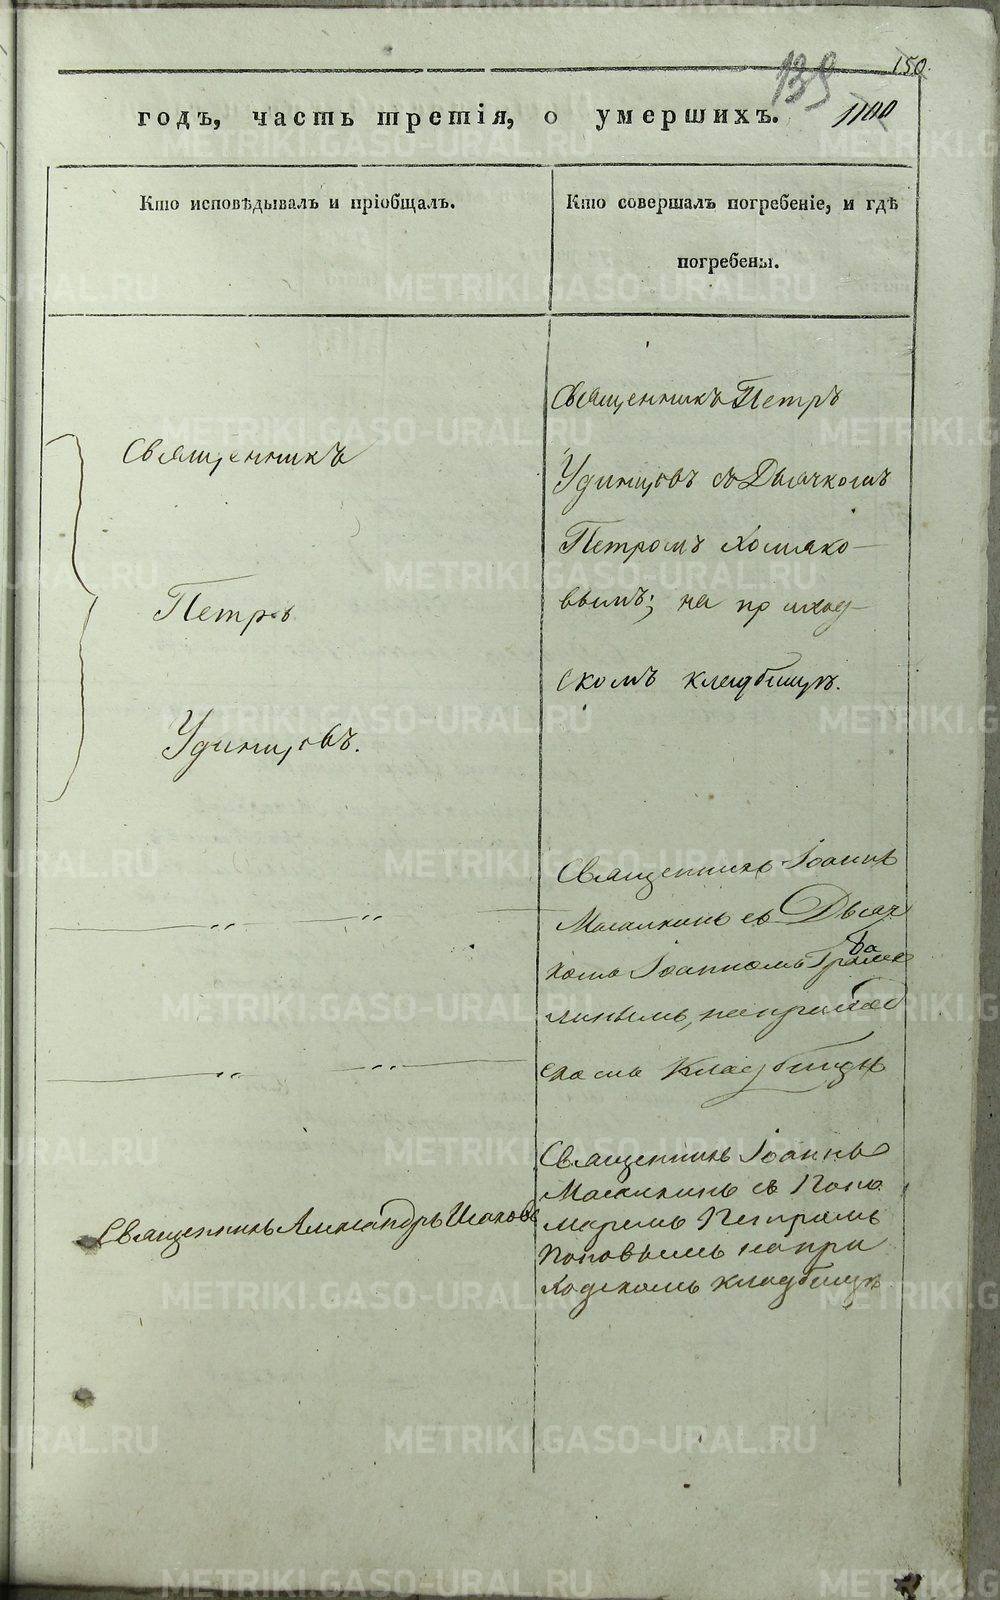 150.
139
1100
годъ, часть третія, о умершихъ.
Кто исповѣдывалъ и пріобщалъ.
Кто совершалъ погребеніе, и гдѣ
погребены.
Священникъ
Петръ
Удинцовъ.
Священникъ Петръ
Удинцовъ съ Дьячкомъ
Петромъ Хомяко-
вымъ; на приход-
скомъ кладбищѣ.
Священникъ Іоаннъ
Масалкинъ съ Дьяч
комъ Іоанномъ
линымъ, на приход
скомъ Кладбищѣ
Священникъ Александръ
Священникъ Іоаннъ
Масалкинъ съ Поно
маремъ Петромъ
Поповымъ на при
ходскомъ кладбищѣ
METRIKI.GASO-URAL.RU